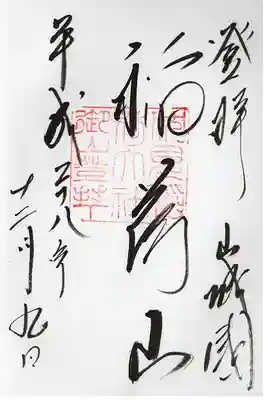 登拝 山城國
稲荷山
平成二十八年
十二月九日